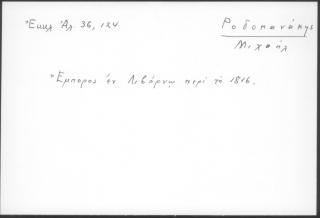 Ἐκκλ Ἀλ 36, 124.
Ροδοκανάκης
Μιχαήλ
Ἔμπορος ἐν Λιβόρνῳ περί τό 1816.